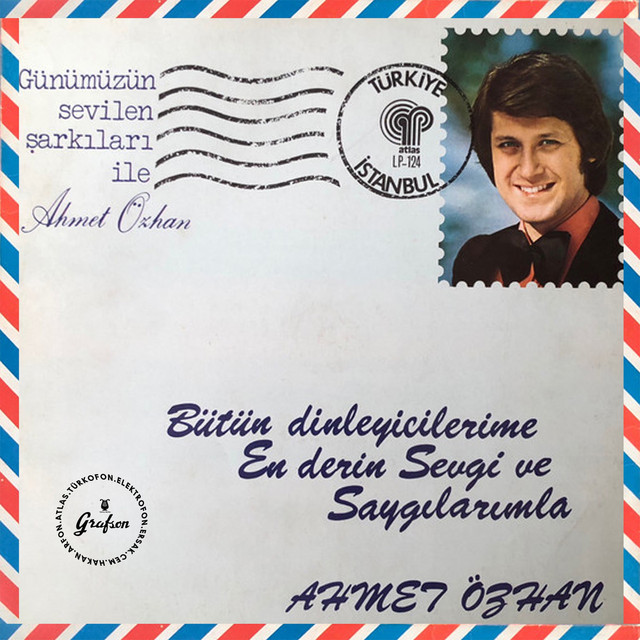 Günümüzün
sevilen
şarkıları
ile
Ahmet Özhan
TÜRKİYE
atlas
LP-124
İSTANBUL
Bütün dinleyicilerime
En derin Sevgi ve
Saygılarımla
AHMET ÖZHAN
ARFON.ATLAS.TÜRKOFON.ELEKTROFON.ERSAK.CEM.HAKAN.
Grafson